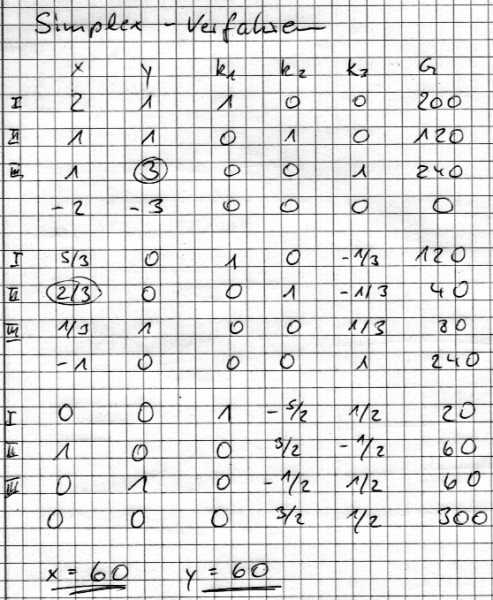 Simplex - Verfahren
x y k₁ k₂ k₃ G
I 2 1 1 0 0 200
II 1 1 0 1 0 120
III 1 3 0 0 1 240
-2 -3 0 0 0 0
I 5/3 0 1 0 -1/3 120
II 2/3 0 0 1 -1/3 40
III 1/3 1 0 0 1/3 80
-1 0 0 0 1 240
I 0 0 1 -5/2 1/2 20
II 1 0 0 3/2 -1/2 60
III 0 1 0 -1/2 1/2 60
0 0 0 3/2 1/2 300
x = 60 y = 60